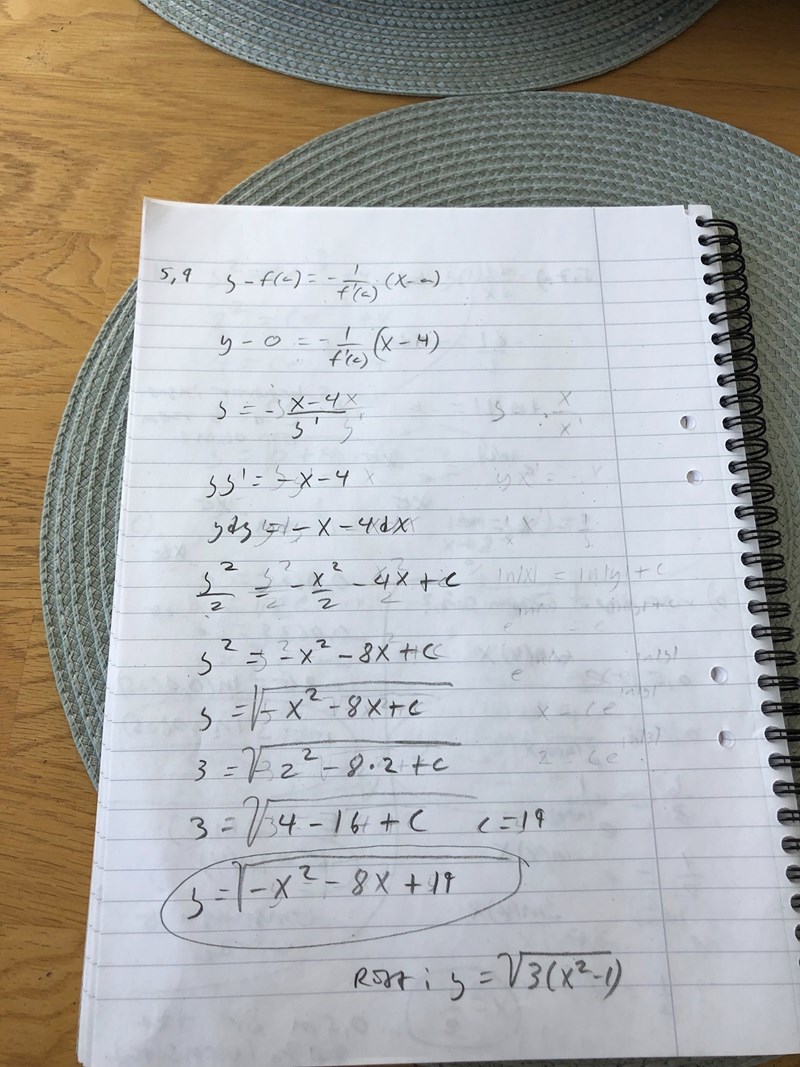 5,9 y - f(a) = - 1/f'(a) · (x - a)
y - 0 = - 1/f'(a) (x - 4)
y = - x - 4/y'
yy' = - x - 4
ydy = - x - 4dx
y²/2 = - x²/2 - 4x + c
y² = - x² - 8x + c
y = √- x² - 8x + c
3 = √2² - 8·2 + c
3 = √4 - 16 + c c = 19
y = √-x² - 8x + 19
Rätt : y = √3(x²-1)